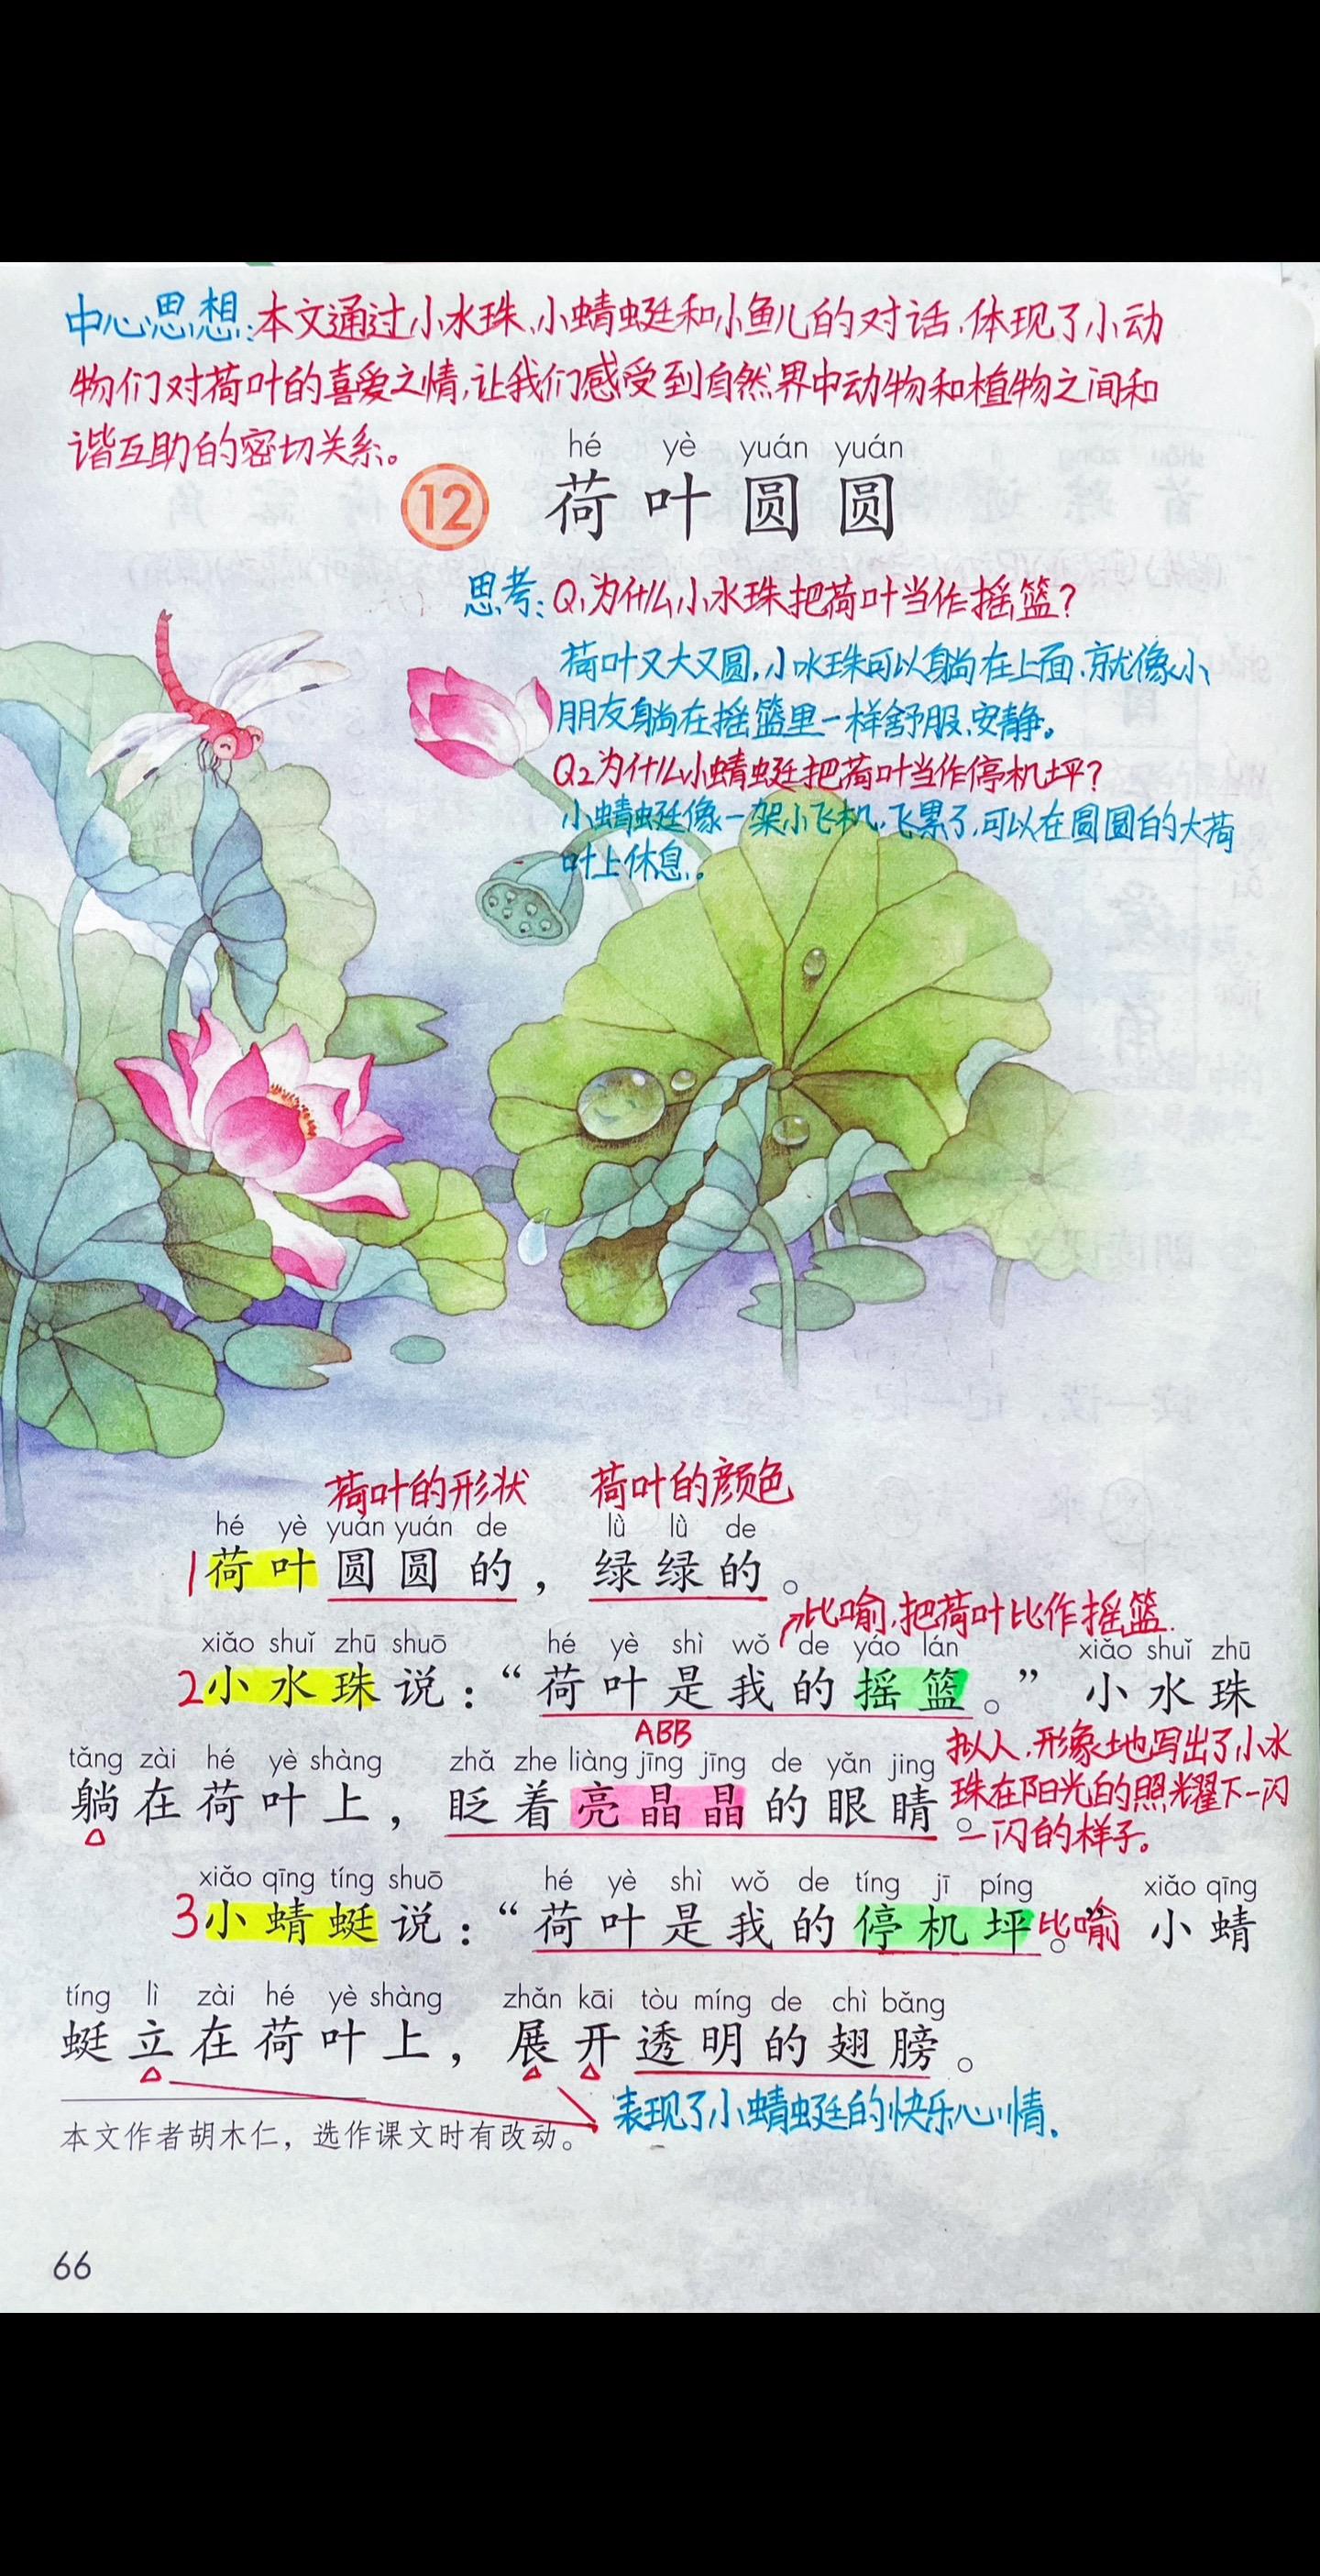 中心思想:本文通过小水珠、小蜻蜓和小鱼儿的对话,体现了小动
物们对荷叶的喜爱之情,让我们感受到自然界中动物和植物之间和
谐互助的密切关系。
hé yè yuán yuán
12 荷叶圆圆
思考:Q1为什么小水珠把荷叶当作摇篮?
荷叶又大又圆,小水珠可以躺在上面,就像小
朋友躺在摇篮里一样舒服、安静。
Q2为什么小蜻蜓把荷叶当作停机坪?
小蜻蜓像一架小飞机,飞累了,可以在圆圆的大荷
叶上休息。
荷叶的形状 荷叶的颜色
hé yè yuán yuán de lǜ lǜ de
1荷叶圆圆的,绿绿的。
比喻,把荷叶比作摇篮.
xiǎo shuǐ zhū shuō hé yè shì wǒ de yáo lán xiǎo shuǐ zhū
2小水珠说:“荷叶是我的摇篮。”小水珠
ABB
tǎng zài hé yè shàng zhǎ zhe liàng jīng jīng de yǎn jing
躺在荷叶上,眨着亮晶晶的眼睛。
拟人,形象地写出了小水
珠在阳光的照耀下一闪
一闪的样子。
xiǎo qīng tíng shuō hé yè shì wǒ de tíng jī píng xiǎo qīng
3小蜻蜓说:“荷叶是我的停机坪。”比喻 小蜻
tíng lì zài hé yè shàng zhǎn kāi tòu míng de chì bǎng
蜓立在荷叶上,展开透明的翅膀。
表现了小蜻蜓的快乐心情.
本文作者胡木仁,选作课文时有改动。
66